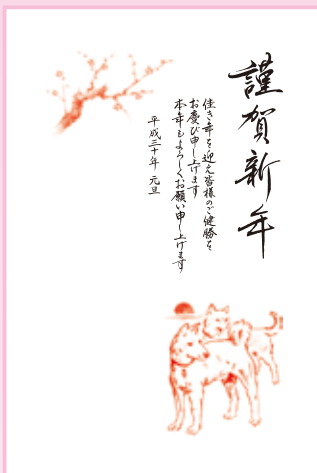 謹賀新年
佳き年を迎え皆様のご健勝を
お慶び申し上げます
本年もよろしくお願い申し上げます
平成三十年 元旦